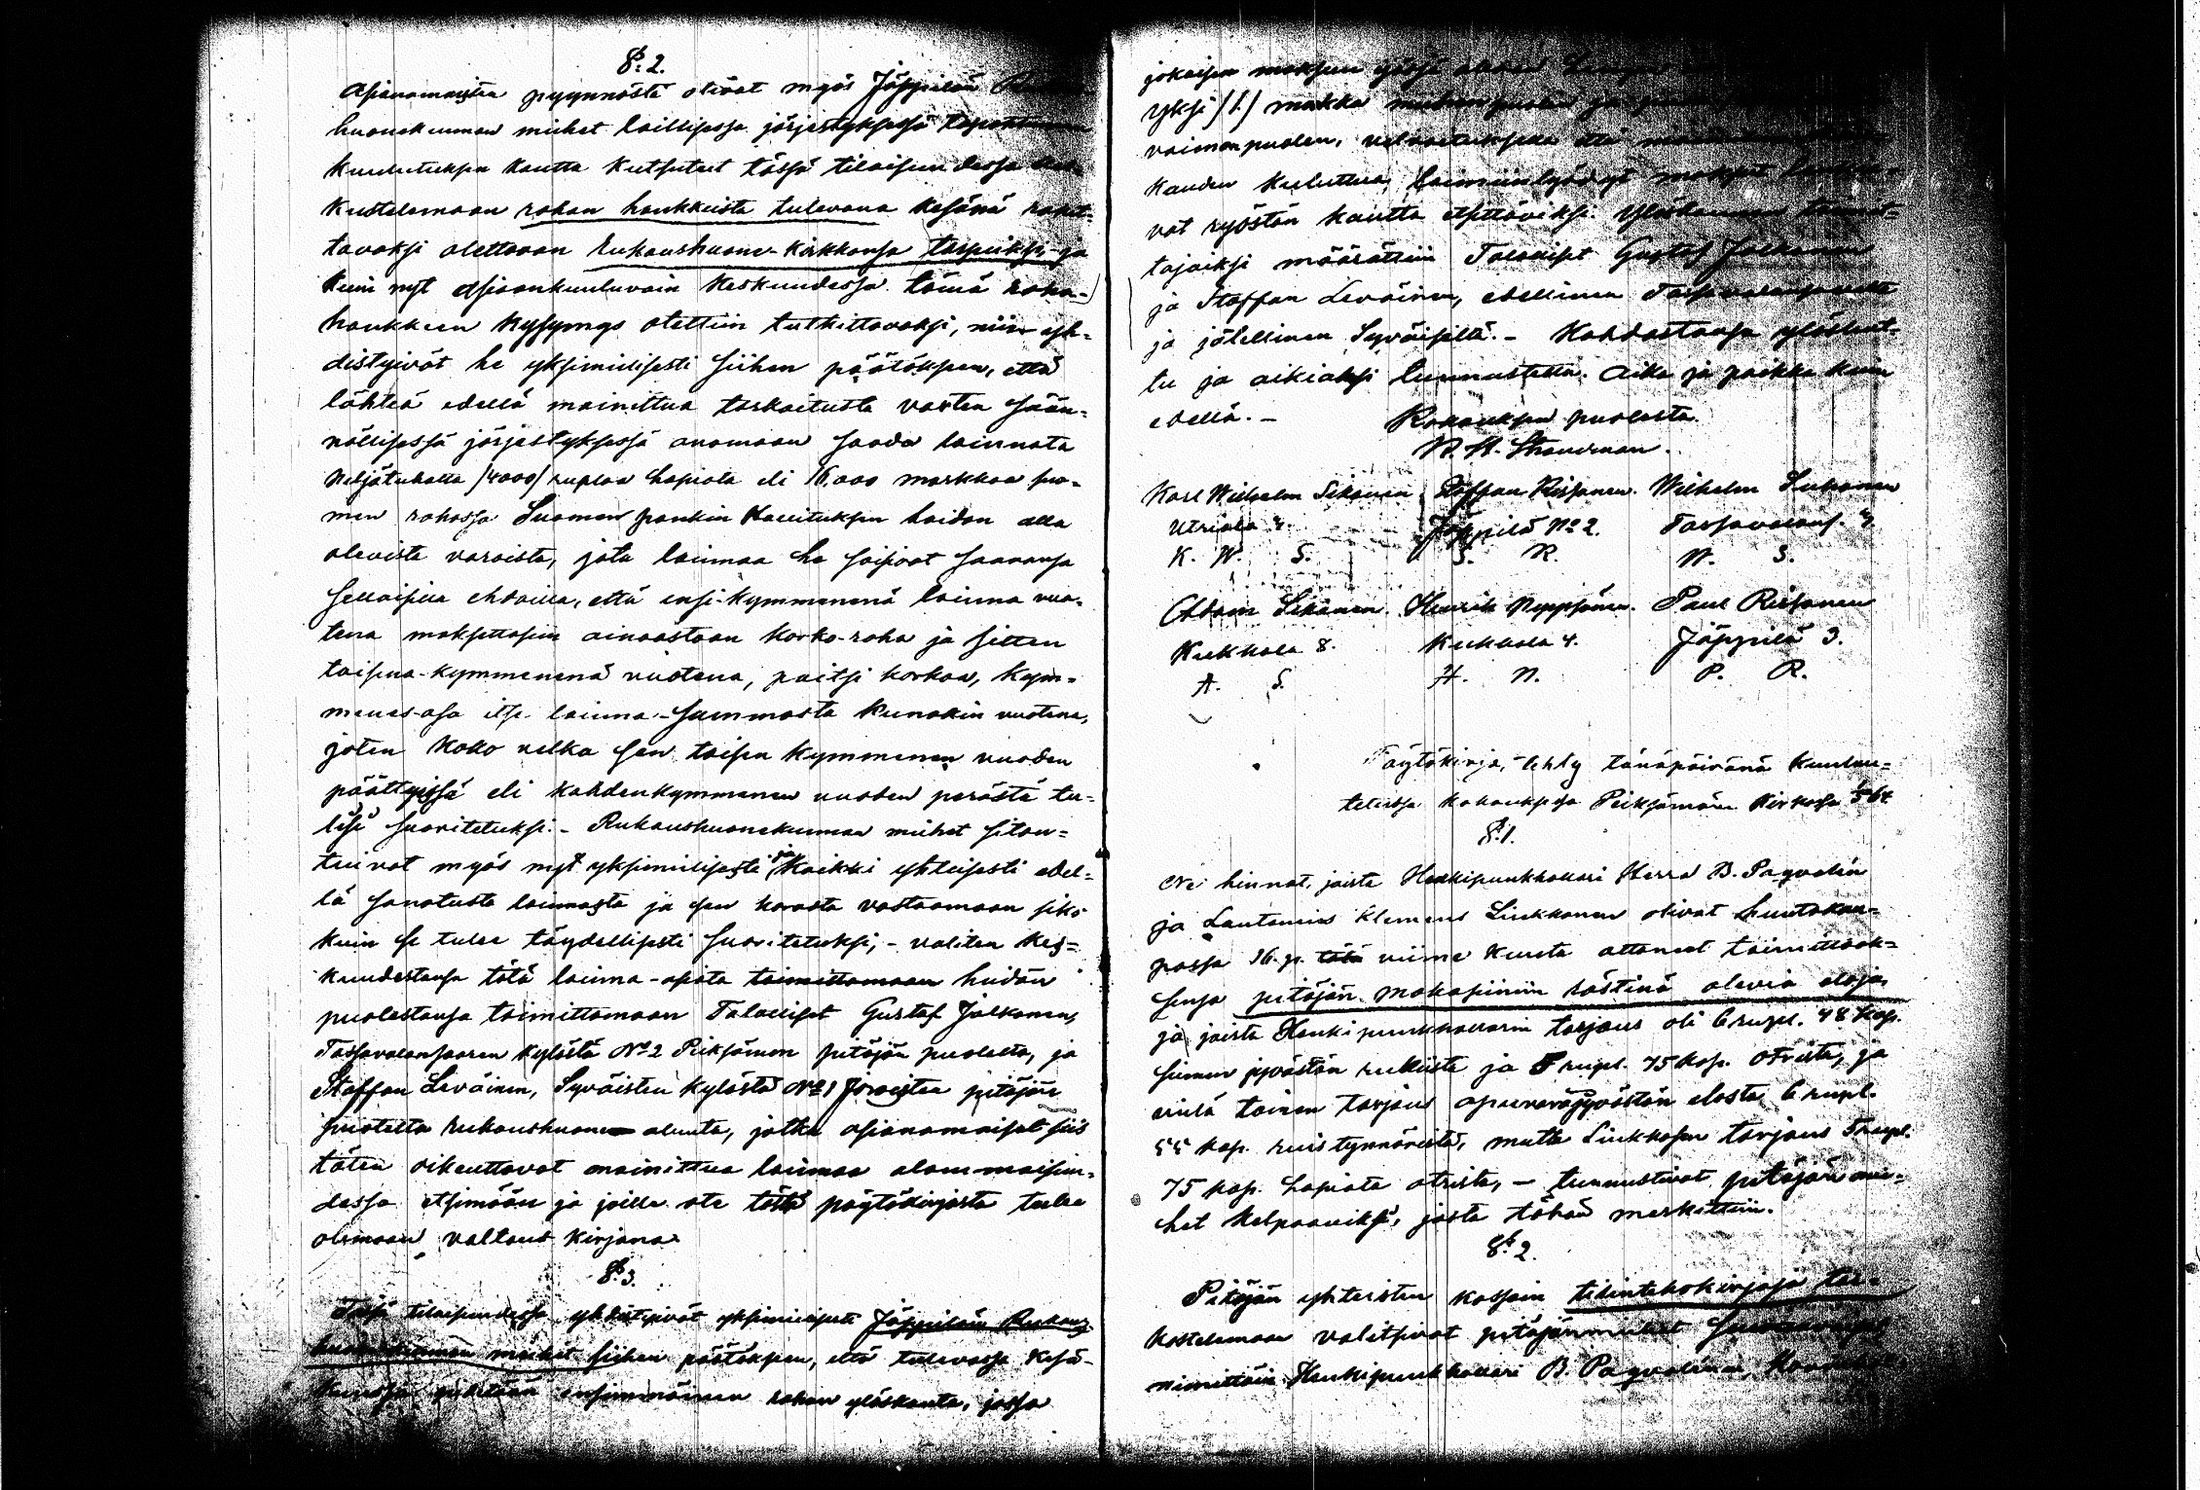 §. 2.
Asianomaisten pyynnöstä olivat myös Jäppilän
huonekunnan miehet laillisessa järjestyksessä
kuulutuksen kautta kutsutut tässä tilaisuudessa kes-
kustelemaan rahan hankkeista tulevana kesänä rakit-
tavaksi olettavan Rukoushuone-kirkkonsa tarpeiksi, ja
kuin nyt asiaankuuluvain keskuudessa tämä raha-
hankkeen kysymys otettiin tutkittavaksi, niin yh-
distyivät he yksimielisesti siihen päätöksen, että
lähteä edellä mainittua tarkoitusta varten sään-
nöllisessä järjestyksessä anomaan saada lainnata
neljätuhatta /4000/ ruplaa hopiata eli 16,000 markkaa suo-
men rahassa Suomen pankin Hallituksen hoidon alla
olevista varoista, jota lainnaa he soisivat saavansa
sellaisilla ehdoilla, että ensi-kymmenenä lainna vuo-
tena maksettaisiin ainoastaan korko-raha ja sitten
toisena-kymmenenä vuotena, paitsi korkoa, kym-
menes-osa itse lainna-summasta kunakin vuotena,
joten koko velka sen toisen kymmenen vuoden
päättyissä eli kahdenkymmenen vuoden perästä tu-
lisi suoritetuksi. - Rukoushuonekunnan miehet sitou-
tuivat myös nyt yksimielisesti ja kaikki yhteisesti edel-
lä sanotusta lainnasta ja sen korosta vastaamaan siksi
kuin se tulee täydellisesti suoritetuksi, - valiten kes-
kuudestansa tätä lainna-asiata toimittamaan heidän
puolestansa toimittamaan Talolliset Gustaf Jalkanen,
Tassavalansaaren kylästä No 2 Pieksämän pitäjän puolelta, ja
Staffan Leväinen, Syväisten kylästä No 1 Joroisten pitäjän
puolelta rukoushuone alunta, jotka asianomaiset siis
täten oikeuttavat mainittua lainnaa alammaisuu-
dessa etsimään ja joille ote tästä pöytäkirjasta tulee
olemaan valtaus kirjana.
§. 3.
Tässä tilaisuudessa yhdistyivät yksimielisesti Jäppilän Rukous-
huonekunnan miehet siihen päätöksen, että tulevassa Kesä-
kuussa pidetään ensimmäinen rahan ylöskanto, jossa
jokaisen maksun
yksi /1/ markka miehenpuolen ja
vaimonpuolen, velvoituksella että
kauden kuluttua, laiminlyödyt maksut
vat ryöstön kautta etsittäviksi. Ylöskannon toimit-
tajaiksi määrättiin Talolliset Gustaf Jalkanen
ja Staffan Leväinen, edellinen Tassavalansaarelta
ja jälellinen Syväisiltä. - Kohdastansa ylösluet-
tu ja oikiaksi tunnustettu. Aika ja paikka kuin
edellä. -
Kokouksen puolesta
N. H. Strandman.
Karl Wilhelm Sikanen Staffan Rissanen. Wilhelm Suhonen
Utriala 4. Jäppilä No 2. Tassavalans. 3.
K. W. S. S. R. W. S.
Adam Sikanen. Henrik Nyyssönen. Paul Rissanen
Kiekkala 8. Kiekkala 4. Jäppilä 3.
A. S. H. N. P. R.
Pöytäkirja, tehty tänäpäivänä kuulu-
tetussa kokouksessa Pieksämän Kirkossa
§. 1.
Ne hinnat, joista Henkipuukhollari Herra B. Paqvalén
ja Lautamies Klemens Liukkonen olivat huutokau-
passa 16. p. viime kuuta ottaneet toimittaak-
sensa pitäjän makasiiniin rästinä olevia eloja,
ja joista Henkipuukhollarin tarjous oli 6 rupl. 48 kop.
siemen jyvästön rukiista ja 5 rupl. 75 kop. otrista, ja
eislä toinen tarjous apuvarajyvästön elosta 6 rupl.
55 kop. ruistynnöristä, mutta Liukkosen tarjous 5 rupl.
75 kop. hopiata otrista, - tunnustivat pitäjän mie-
het kelpaaviksi, josta tähän merkittiin.
§. 2.
Pitäjän yhteisten kassain tilintekokirjoja tar-
kastelemaan valitsivat pitäjänmiehet
nimittäin Henkipuukhollari B. Paqvalénin,